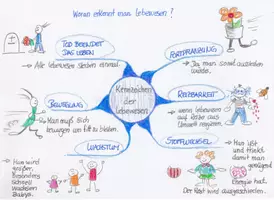 Woran erkennt man Lebewesen?
TOD BEENDET
DAS LEBEN
→ Alle Lebewesen sterben einmal.
FORTPFLANZUNG
→ Da man sonst aussterben
würde.
Kennzeichen
der
Lebewesen
BEWEGUNG
→ Man muß sich
bewegen um fit zu bleiben.
REIZBARKEIT
→ wenn Lebewesen
auf Reize aus
Umwelt reagieren.
WACHSTUM
→ Man wird
größer.
Besonders
schnell
wachsen
Babys.
STOFFWECHSEL
→ Man ißt
und trinkt
damit man
genügend
Energie hat.
Der Rest wird ausgeschieden.